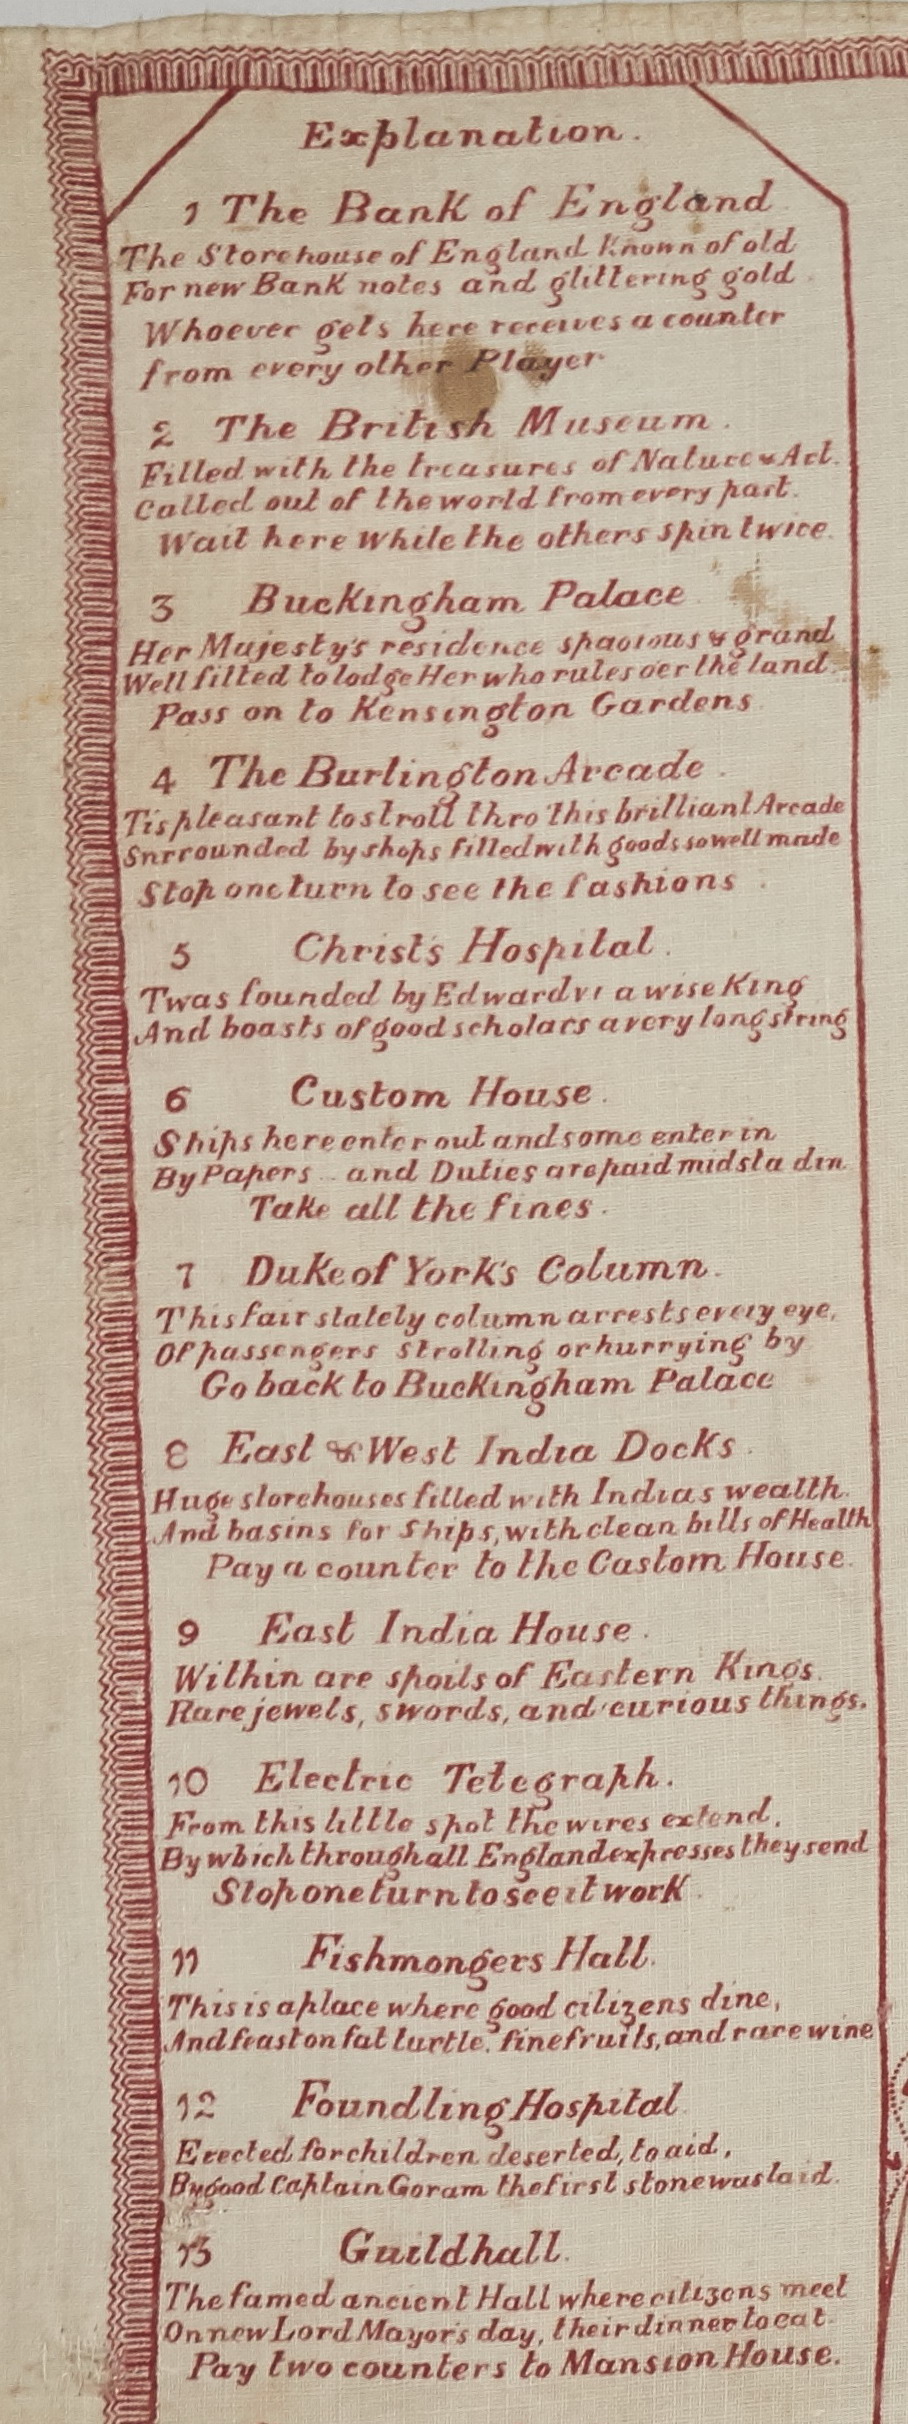 Explanation.
1 The Bank of England
The Storehouse of England Known of old
For new Bank notes and glittering gold
Whoever gets here receives a counter
from every other Player
2 The British Museum.
Filled with the treasures of Nature & Art.
Called out of the world from every part.
Wait here While the others spin twice.
3 Buckingham Palace
Her Majesty's residence spacious & grand
Well fitted to lodge Her who rules oer the land.
Pass on to Kensington Gardens.
4 The Burlington Arcade.
Tis pleasant to stroll thro' this brilliant Arcade
Surrounded by shops filled with goods so well made
Stop one turn to see the fashions.
5 Christ's Hospital.
Twas founded by Edward VI a wise King
And boasts of good scholars a very long string
6 Custom House.
Ships here enter out and some enter in
By Papers .. and Duties are paid midst a din
Take all the fines.
7 Duke of York's Column.
This fair stately column arrests every eye,
Of passengers strolling or hurrying by
Go back to Buckingham Palace
8 East & West India Docks.
Huge storehouses filled with Indias wealth.
And basins for Ships, with clean bills of Health
Pay a counter to the Custom House.
9 East India House.
Within are spoils of Eastern Kings.
Rare jewels, swords, and curious things.
10 Electric Telegraph.
From this little spot the wires extend,
By which through all England expresses they send
Stop one turn to see it work.
11 Fishmongers Hall.
This is a place where good citizens dine,
And feast on fat turtle, fine fruits, and rare wine
12 Foundling Hospital
Erected for children deserted, to aid,
By good Captain Goram the first stone was laid.
13 Guildhall.
The famed ancient Hall where citizens meet
On new Lord Mayor's day, their dinner to eat.
Pay two counters to Mansion House.